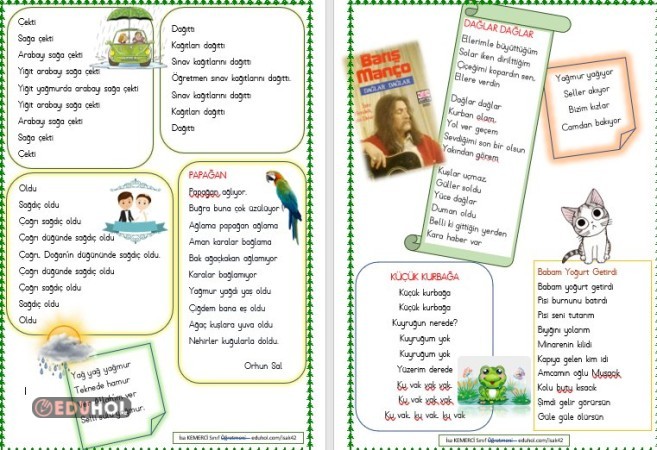 Çekti
Sağa çekti
Arabayı sağa çekti
Yiğit arabayı sağa çekti
Yiğit yağmurda arabayı sağa çekti
Yiğit arabayı sağa çekti
Arabayı sağa çekti
Sağa çekti
Çekti
Dağıttı
Kağıtları dağıttı
Sınav kağıtlarını dağıttı
Öğretmen sınav kağıtlarını dağıttı.
Sınav kağıtlarını dağıttı
Kağıtları dağıttı
Dağıttı
Oldu
Sağdıç oldu
Çağrı sağdıç oldu
Çağrı düğünde sağdıç oldu
Çağrı, Doğan'ın düğününde sağdıç oldu.
Çağrı düğünde sağdıç oldu
Çağrı sağdıç oldu
Sağdıç oldu
Oldu
PAPAĞAN
Papağan ağlıyor.
Buğra buna çok üzülüyor
Ağlama papağan ağlama
Aman karalar bağlama
Bak ağaçkakan ağlamıyor
Karalar bağlamıyor
Yağmur yağdı yaş oldu
Çiğdem bana eş oldu
Ağaç kuşlara yuva oldu
Nehirler kuğularla doldu.
Orhun Sal
Yağ yağ yağmur
Teknede hamur
ver
EDUHOL
İsa KEMERCİ Sınıf Öğretmeni- eduhol.com/isak42
DAĞLAR DAĞLAR
Ellerimle büyüttüğüm
Solar iken dirilttiğim
Çiçeğimi kopardın sen,
Ellere verdin
Dağlar dağlar
Kurban olam,
Yol ver geçem
Sevdiğimi son bir olsun
Yakından görem
Kuşlar uçmaz
Güller soldu
Yüce dağlar
Duman oldu
Belli ki gittiğin yerden
Kara haber var
Barış
Manço
DAĞLAR DAĞLAR
Yağmur yağıyor
Seller akıyor
Bizim kızlar
Camdan bakıyor
KÜÇÜK KURBAĞA
Küçük kurbağa
Küçük kurbağa
Kuyruğun nerede?
Kuyruğum yok
Kuyruğum yok
Yüzerim derede
Ku, vak vak vak
Ku, vak vak vak
Ku, vak, ku, vak, ku, vak
Babam Yoğurt Getirdi
Babam yoğurt getirdi
Pisi burnunu batırdı
Pisi seni tutarım
Bıyığını yolarım
Minarenin kilidi
Kapıya gelen kim idi
Amcamın oğlu Musacık
Kolu budu kısacık
Şimdi gelir görürsün
Güle güle ölürsün
İsa KEMERCİ Sınıf Öğretmeni- eduhol.com/isak42